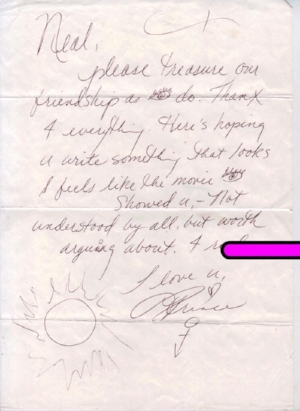 Neal,
please treasure our
friendship as do. Thanx
4 everything. Here's hoping
u write something that looks
& feels like the movie
Showed u, – Not
understood by all, but worth
arguing about. 4
I love u,
Prince